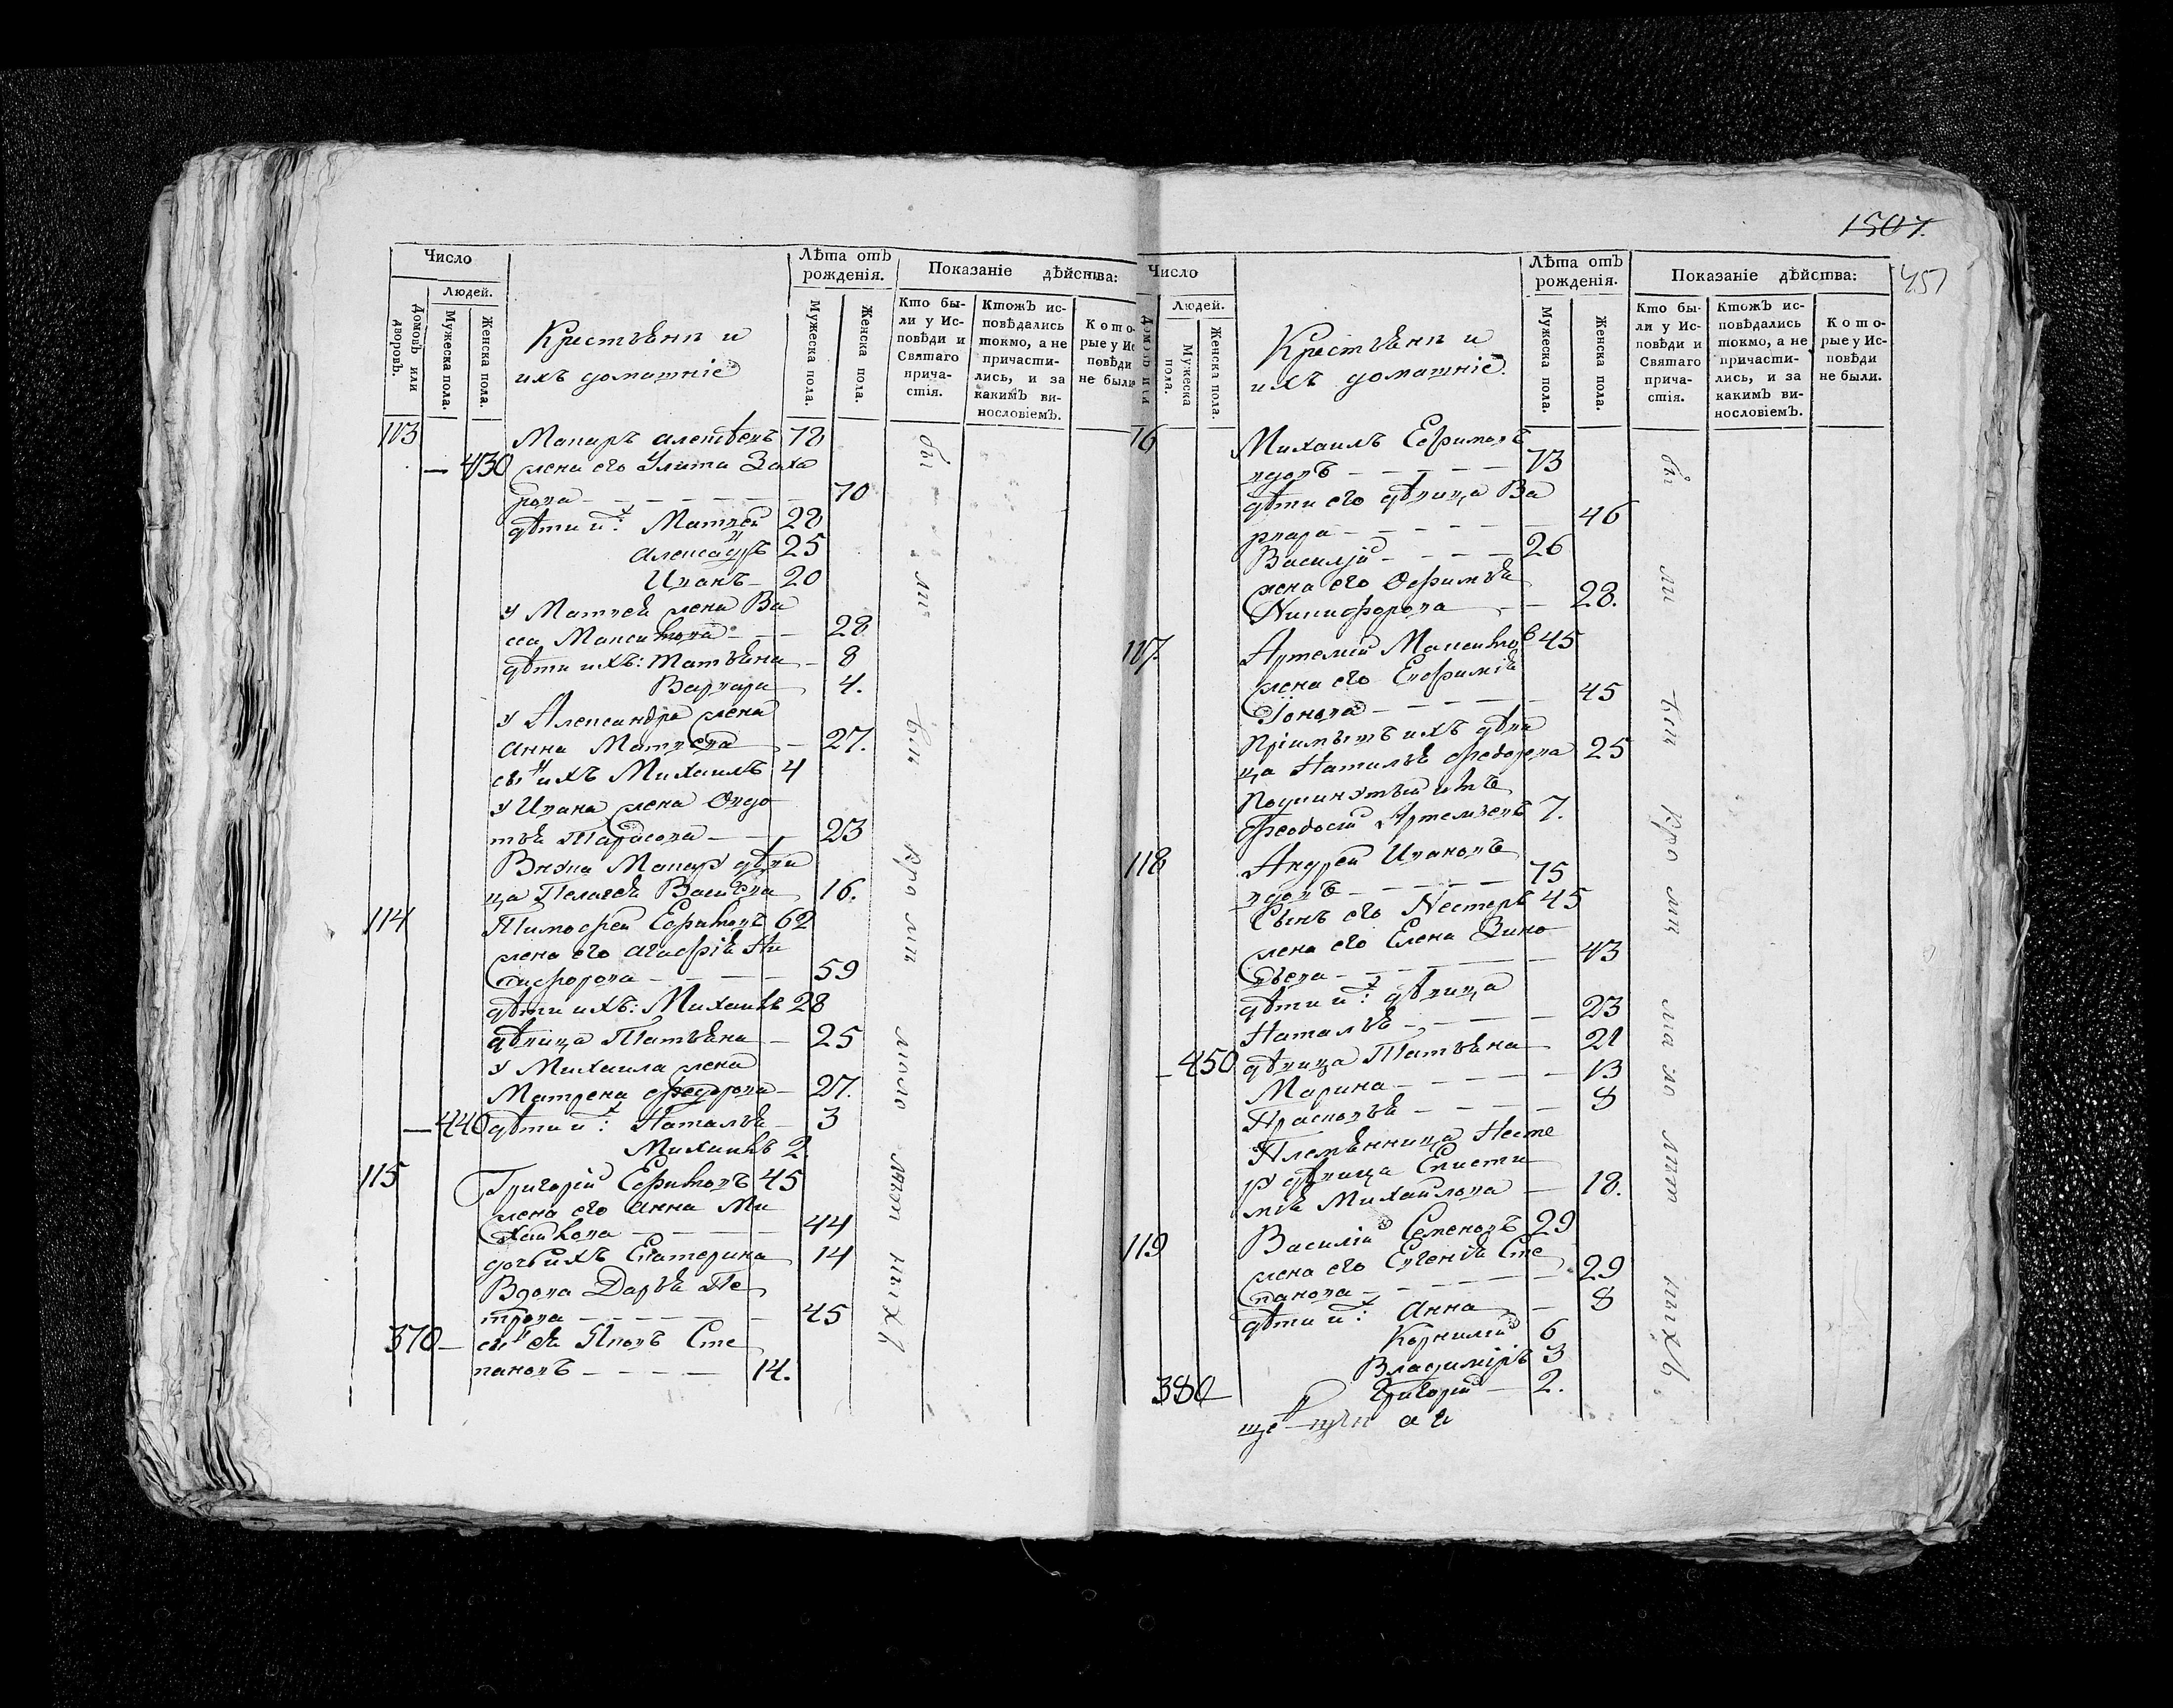 Число
Людей.
Домовъ или дворовъ.
Мужеска пола.
Женска пола.
Крестьяне и
ихъ домашніе
Лѣта отъ рожденія.
Мужеска пола.
Женска пола.
Показаніе дѣйства:
Кто были у Исповѣди и Святаго причастія.
Ктожъ исповѣдались токмо, а не причастились, и за какимъ винословіемъ.
Которые у Исповѣди не были
113 Макаръ Алексѣевъ 72
— 430 жена его Улита Заха
рова — 70
дѣти их: Матвей 28
Александръ 25
Иванъ 20
у Матвея жена Ва
сса Максимова — 28
дѣти ихъ: Татьяна — 8
Варвара 4.
у Александра жена
Анна Матвеева — 27.
сынъ ихъ Михаилъ 4
у Ивана жена Овдо
тья Тарасова — 23
Внука Макару дѣви
ца Пелагея Васильева 16.
114 Тимофей Ефимовъ 62
жена его Агафія Ни
кифорова — 59
дѣти ихъ: Михаилъ 28
дѣвица Татьяна — 25
у Михаила жена
Матрена Федорова — 27.
— 440 дѣти их: Наталья — 3
Михаилъ 2.
115 Григорій Ефимовъ 45
жена его Анна Ми
хайлова — 44
дочь ихъ Екатерина 14
Вдова Дарья Пе
трова — 45
370 — сынъ ея Яковъ Сте
пановъ — 14.
бы ли ѣси кро мѣ мало лѣт нихъ
1507.
451
Число
Людей.
Мужеска пола.
Женска пола.
Крестьяне и
ихъ домашніе.
Лѣта отъ рожденія.
Мужеска пола.
Женска пола.
Показаніе дѣйства:
Кто были у Исповѣди и Святаго причастія.
Ктожъ исповѣдались токмо, а не причастились, и за какимъ винословіемъ.
Которые у Исповѣди не были.
16 Михаилъ Ефимовъ
вдовъ — 73
дѣти его дѣвица Ва
рвара — 46
Василій — 26
жена его Ефимья
Никифорова — 28.
117. Артемій Максимовъ 45
жена его Евфимія
Іонова — 45
Пріимышъ ихъ дѣви
ца Наталья Федорова 25
Подкинутый имъ
Феодосій Артемьевъ 7.
118 Андрей Ивановъ
вдовъ — 75
Сынъ его Несторъ 45
жена его Елена Зино
вьева — 43
дѣти их: дѣвица
Наталья — 23
— 450 дѣвица Татьяна — 21
Марина — 13
Прасковья — 8
Племянница Несто
ру дѣвица Еписти
мія Михайлова — 18.
119 Василій Семеновъ 29
жена его Евгенія Сте
панова — 29
дѣти их: Анна — 8
Корнилій 6
Владиміръ 3
380 — Григорій — 2.
бы ли ѣси кро мѣ мало лѣт нихъ.